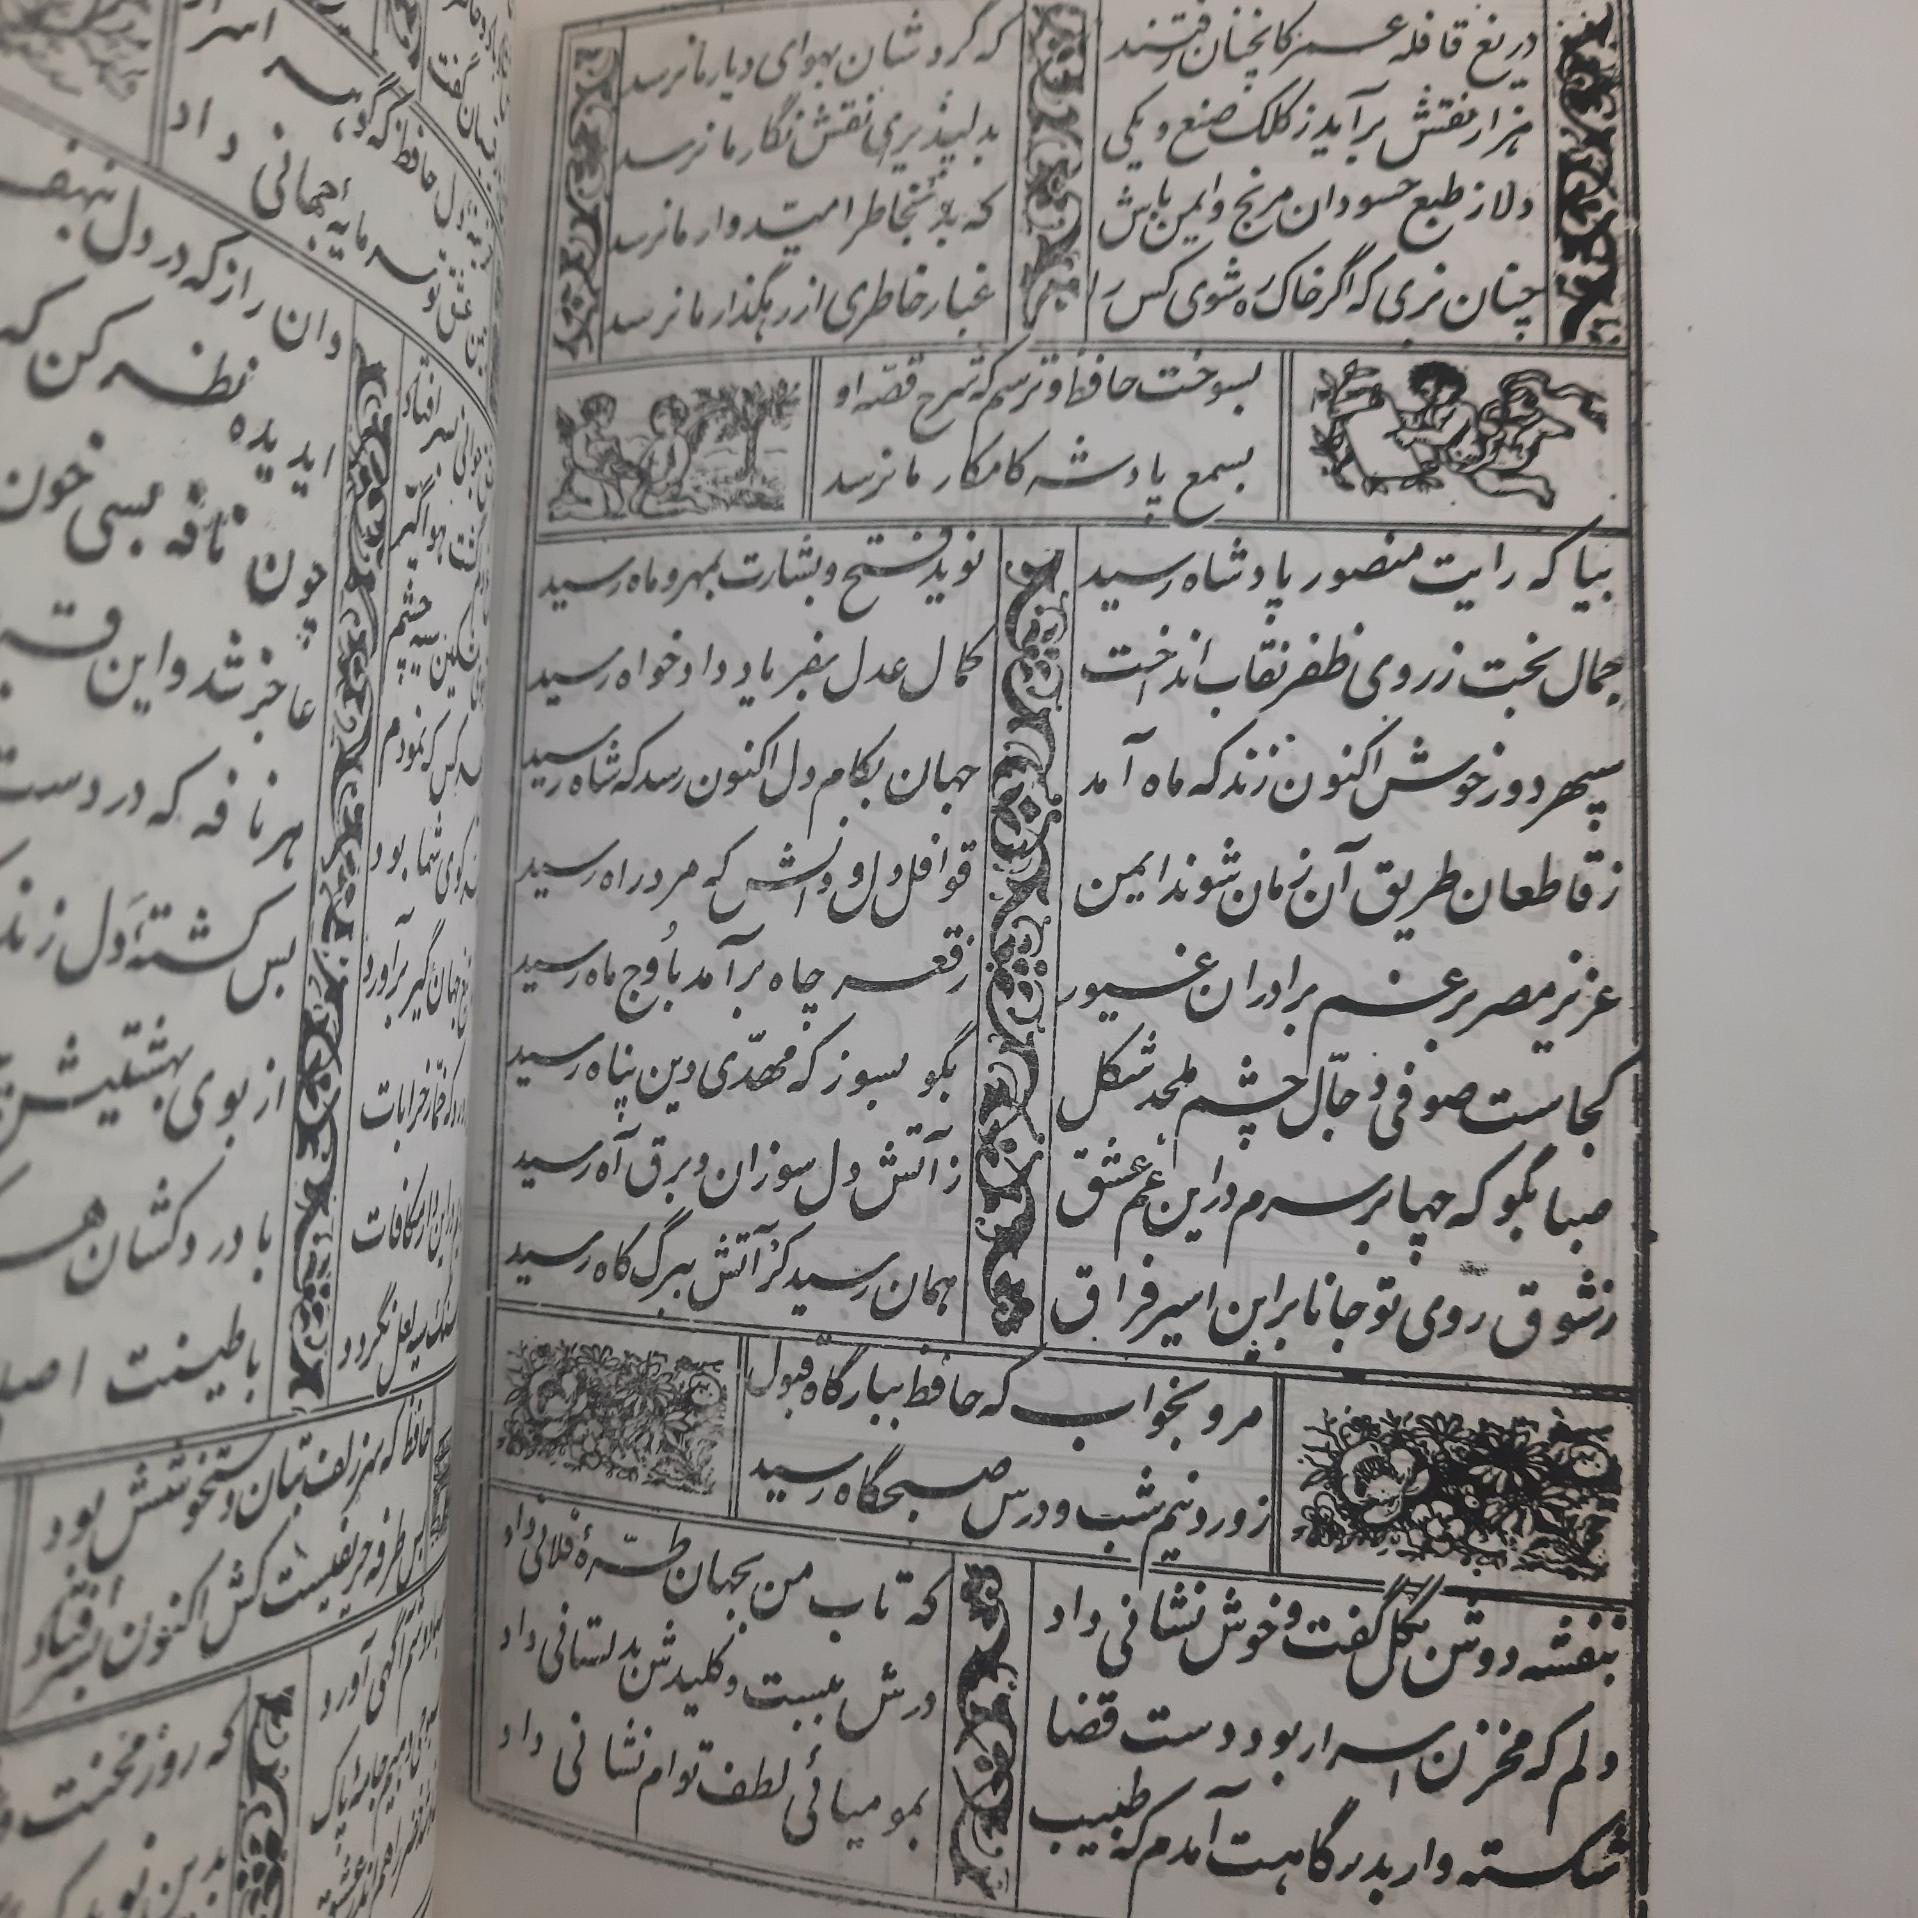 دریغ قافله عمر کانچنان رفتند
که گردشان بهوای دیار ما نرسد
هزار نقش برآید ز کلک صنع و یکی
بدلپذیری نقش نگار ما نرسد
دلا ز طبع حسودان مرنج و ایمن باش
که بد بخاطر امیدوار ما نرسد
چنان بزی که اگر خاک ره شوی کس را
غبار خاطری از رهگذار ما نرسد
بسوخت حافظ و ترسم که شرح قصه او
بسمع پادشه کامکار ما نرسد
بیا که رایت منصور پادشاه رسید
نوید فتح و بشارت بمهر و ماه رسید
جمال بخت ز روی ظفر نقاب انداخت
کمال عدل بفریاد دادخواه رسید
سپهر دور خوش اکنون زند که ماه آمد
جهان بکام دل اکنون رسد که شاه رسید
ز قاطعان طریق آن زمان شوند ایمن
قوافل دل و دانش که مرد راه رسید
عزیز مصر برغم برادران غیور
ز قعر چاه برآمد باوج ماه رسید
کجاست صوفی دجّال چشم ملحد شکل
بگو بسوز که مهدّی دین پناه رسید
صبا بگو که چها بر سرم در این غم عشق
ز آتش دل سوزان و برق آه رسید
ز شوق روی تو جانا بر این اسیر فراق
همان رسید کز آتش ببرگ کاه رسید
مرو بخواب که حافظ ببارگاه قبول
ز ورد نیم شب و درس صبحگاه رسید
بنفشه دوش بگل گفت و خوش نشانی داد
که تاب من بجهان طرّهٔ فلانی داد
دلم که مخزن اسرار بود دست قضا
درش ببست و کلیدش بدلستانی داد
شکسته وار بدرگاهت آمدم که طبیب
بمومیائی لطف توام نشانی داد
وان راز که در دل نهفت
ایدیده نظر کن که
چون نافه بسی خون
عاجز شد و این
هر نافه که در دست
بس کشتهٔ دل زند
از بوی بهشتیش
با درد کشان هر
با طینت اصل
حافظ که سر زلف بتان دستخوشش بود
بس طرفه حریفیست کش اکنون بسر افتاد